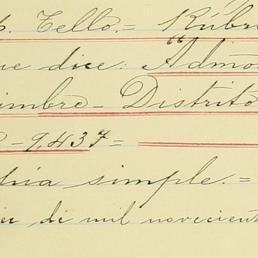 Tello.= Rúbri
ue dice: "Admo
imbre- Distrito
- 9,437=
pia simple.=
de mil novecient